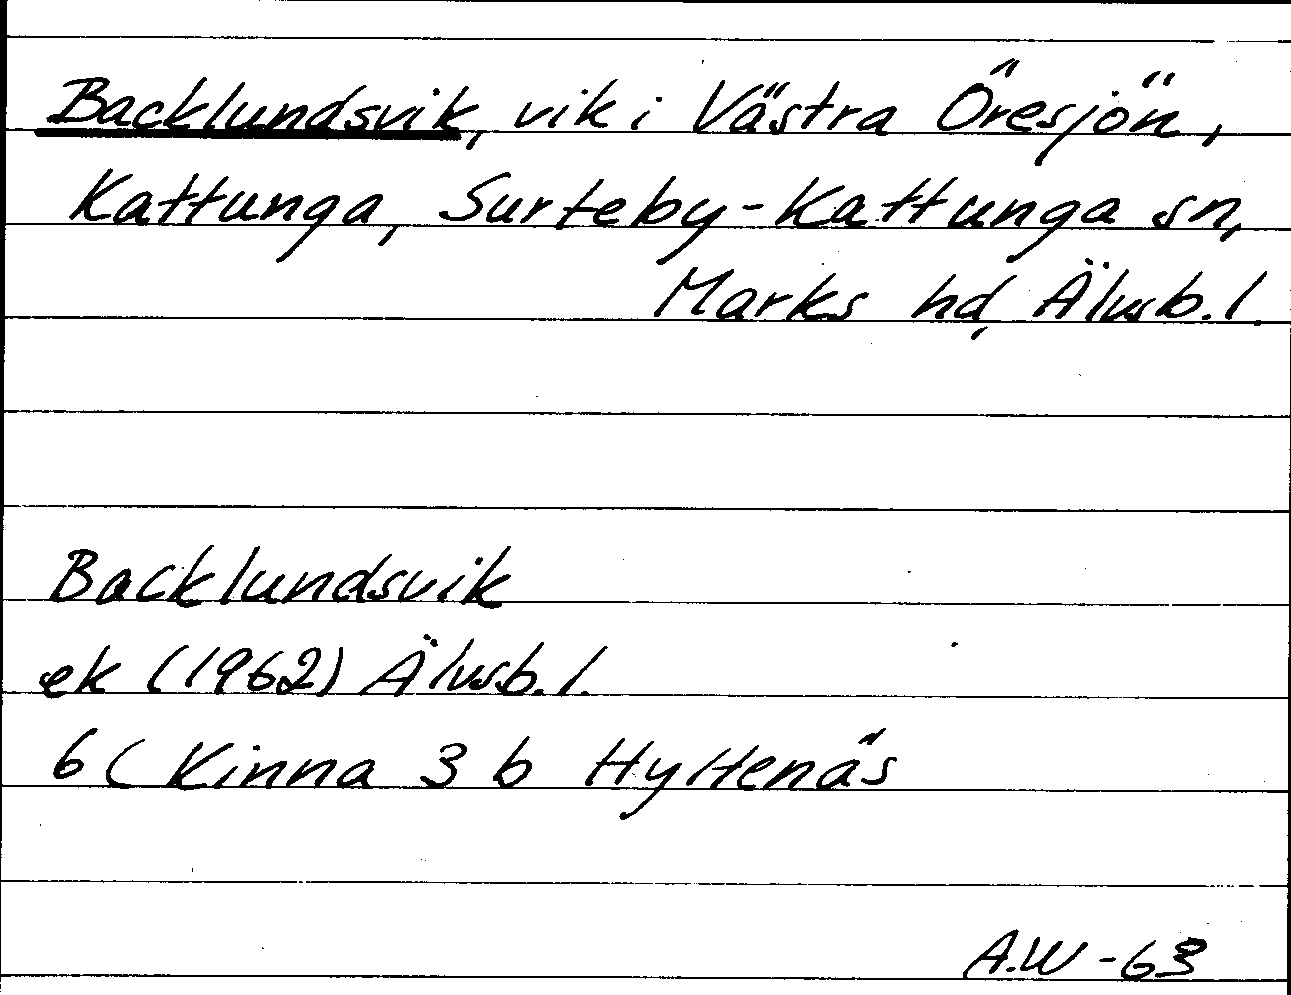 Backlundsvik, vik i Västra Öresjön,
Kattunga, Surteby-Kattunga sn,
Marks hd, Älvsb.l.
Backlundsvik
ek (1962) Älvsb.l.
6C Kinna 3 b Hyltenäs
A.W -63